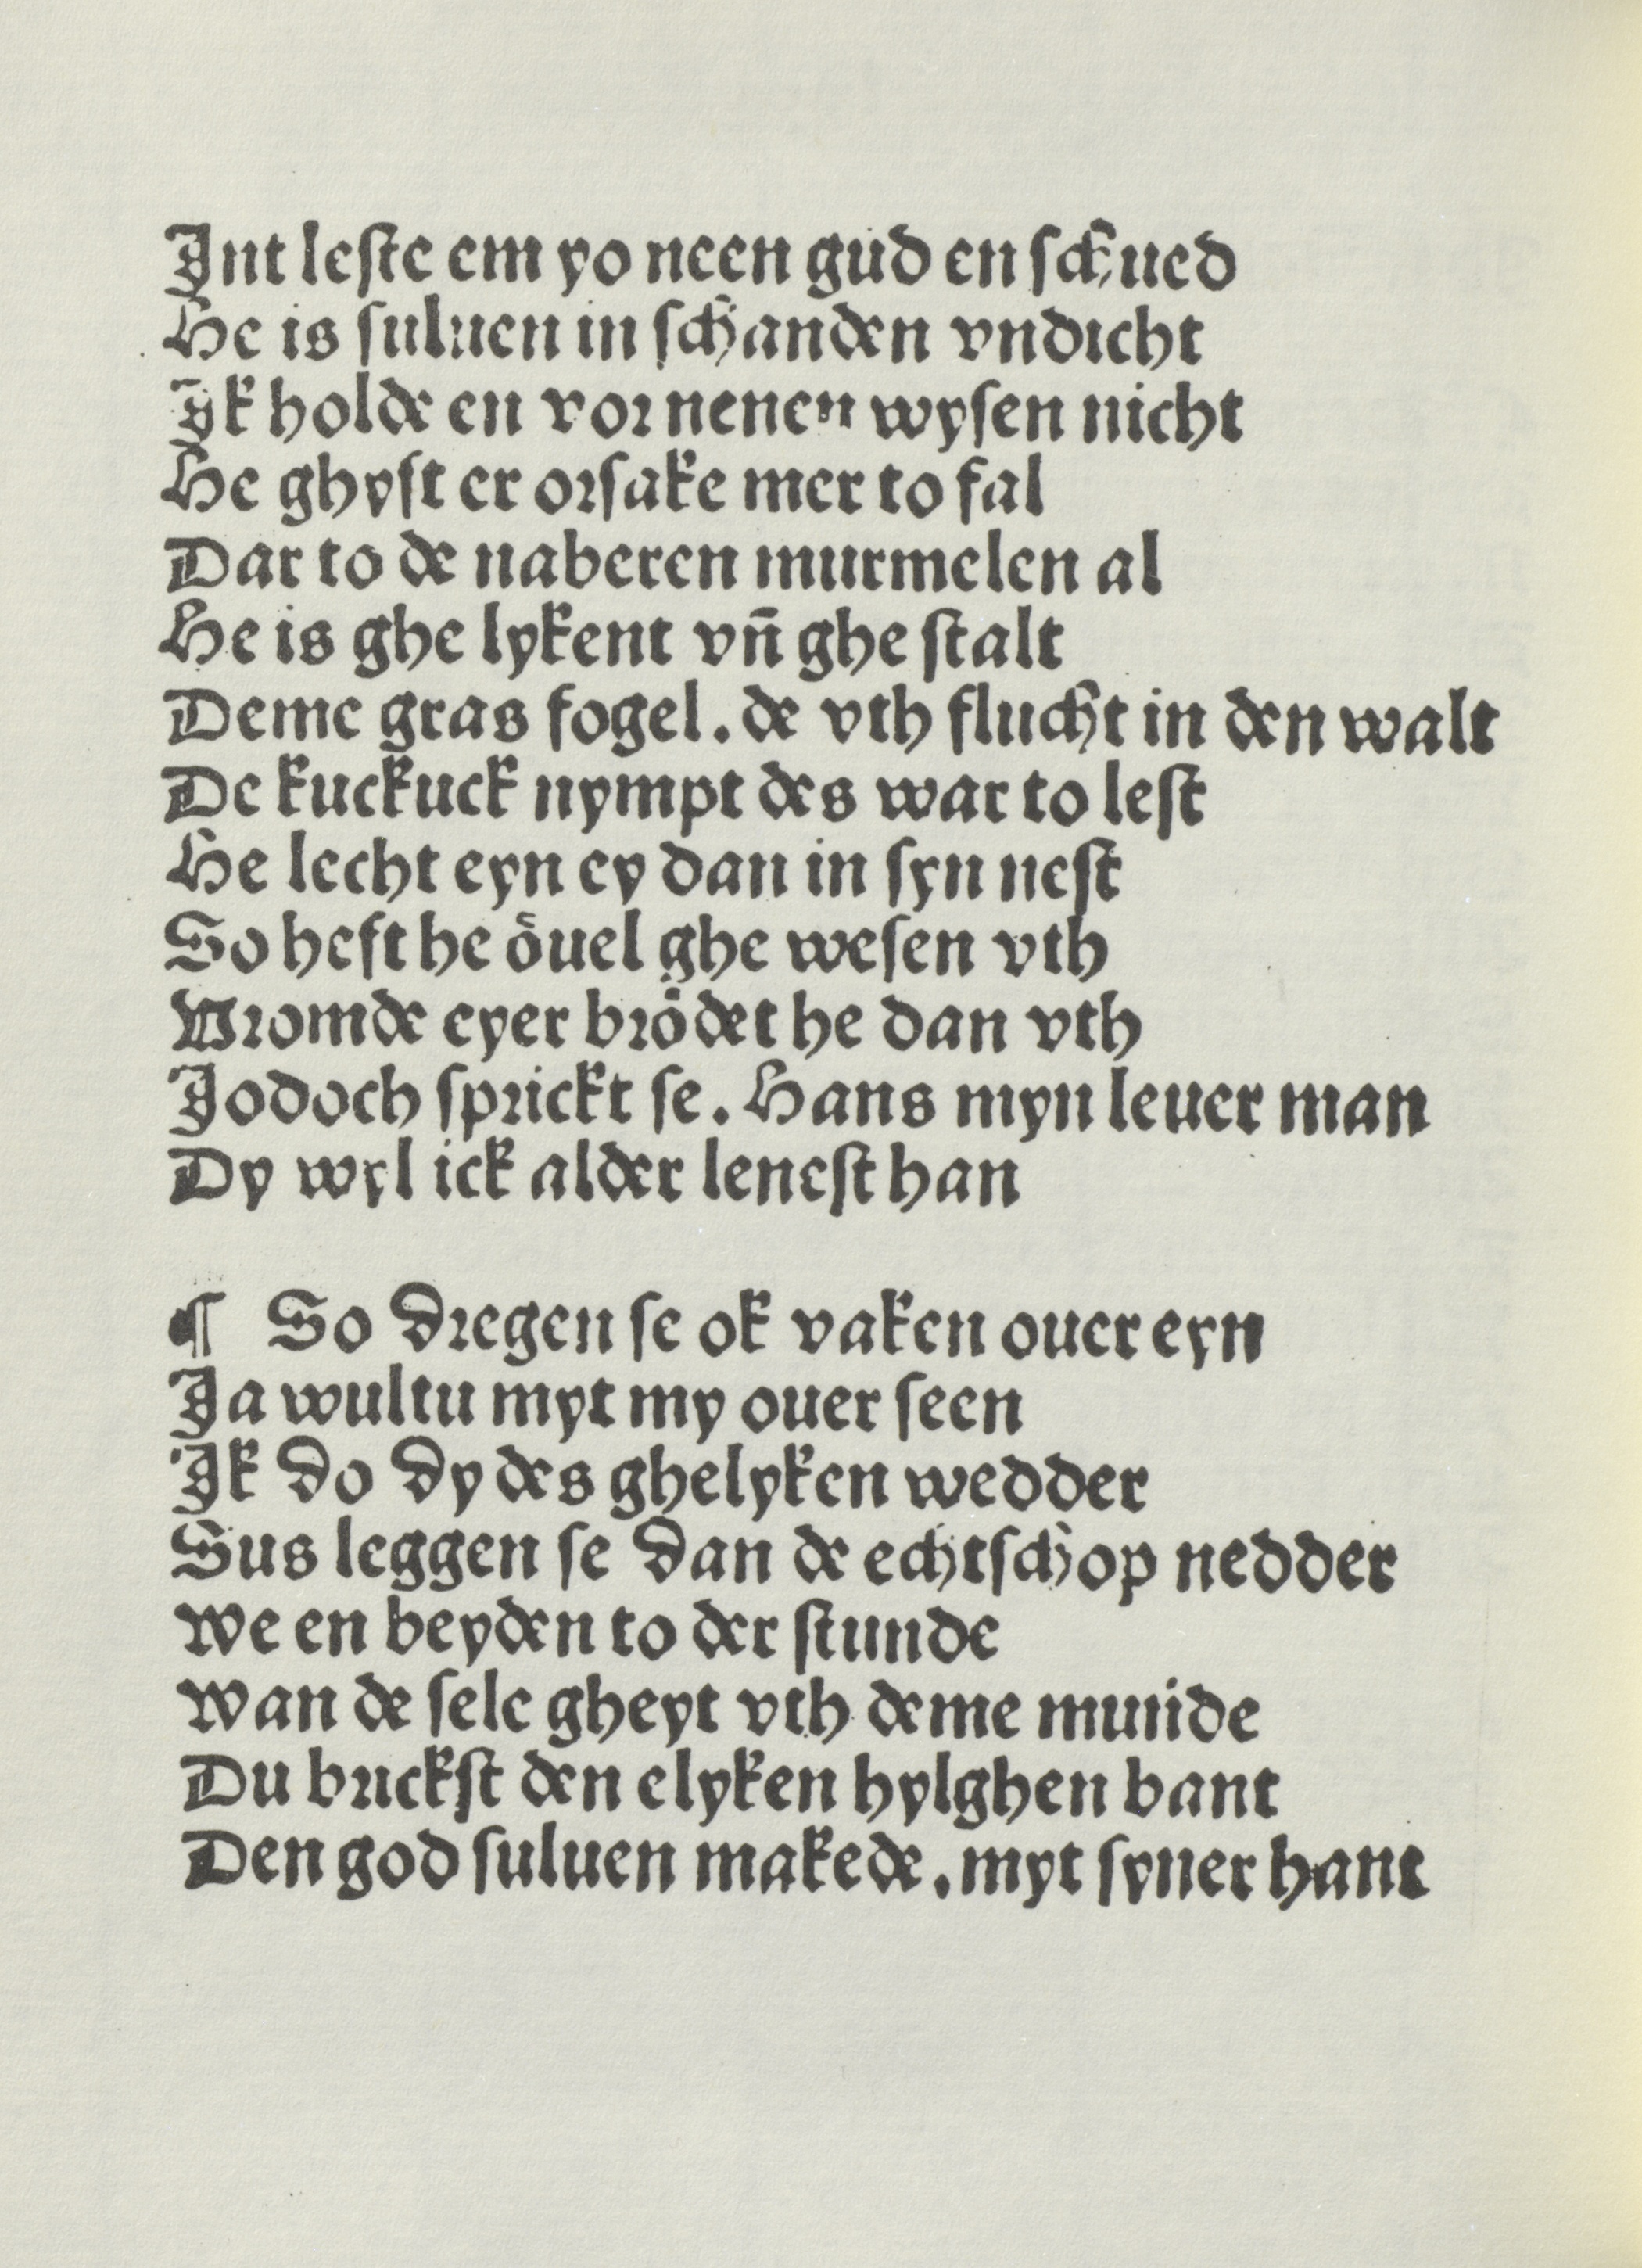 Jnt leſte em yo neen gud en ſchued
He is ſuluen in ſchanden vndicht
Jk holde en vor nenen wyſen nicht
He ghyſt er orſake mer to fal
Dar to de naberen murmelen al
He is ghe lykent vñ ghe ſtalt
Deme gras fogel. de vth flucht in den walt
De kuckuck nympt des war to leſt
He lecht eyn ey dan in ſyn neſt
So heft he oͤuel ghe weſen vth
Vromde eyer broͤdet he dan vth
Jodoch ſprickt ſe. Hans myn leuer man
Dy wyl ick alder leneſt han
¶ So dregen ſe ok vaken ouer eyn
Ja wultu myt my ouer ſeen
Jk do dy des ghelyken wedder
Sus leggen ſe dan de echtſchop nedder
We en beyden to der ſtunde
Wan de ſele gheyt vth deme munde
Du brickſt den elyken hylghen bant
Den god ſuluen makede. myt ſyner hant